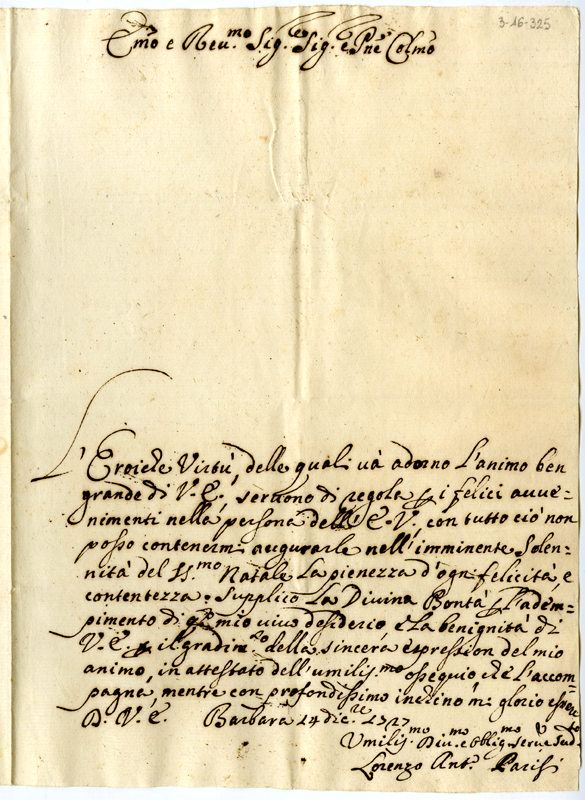 3-16-325
Emo e Reu.mo Sig.e Sig.e Pne Colmo
L'Eroiche Virtú, delle quali uà adorno L'animo ben
grande di V. E. seruono di regola p i felici auue=
nimenti nella persona dell'E. V. con tutto ció non
posso contenermi augurarle nell'imminente Solen=
nitá del SS.mo Natale La pienezza d'ogni felicitá, e
contentezza. Supplico La Divina Bontá p L'adem=
pimento di qto mio uiuo desiderio e La benignitá di
V. E. p il gradim.to della sincera espression del mio
animo, in attestato dell'umilis.mo ossequio che L'accom
pagna, mentre con profondissimo inchino mi glorio essere
D. V. E. Barbara 14 dic.re
Umilis.mo Diu.mo e Oblig.mo seru.e
Lorenzo Ant.o Parisi